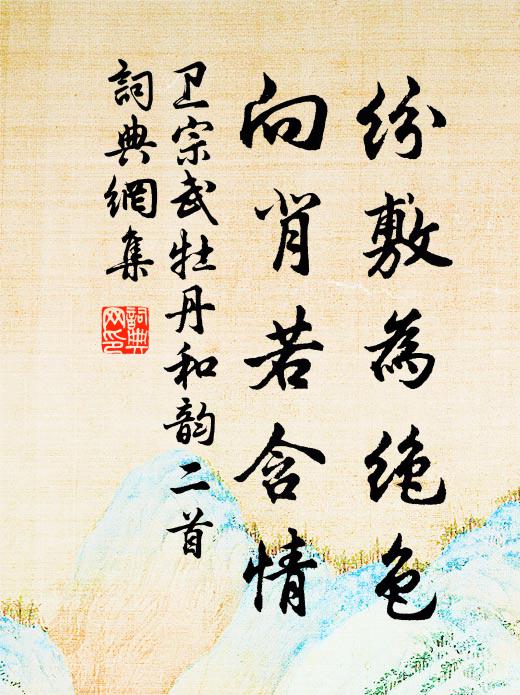 纷敷為绝色
向背若含情
卫宗武牡丹和韵二首
詞典網集
詞典
网印